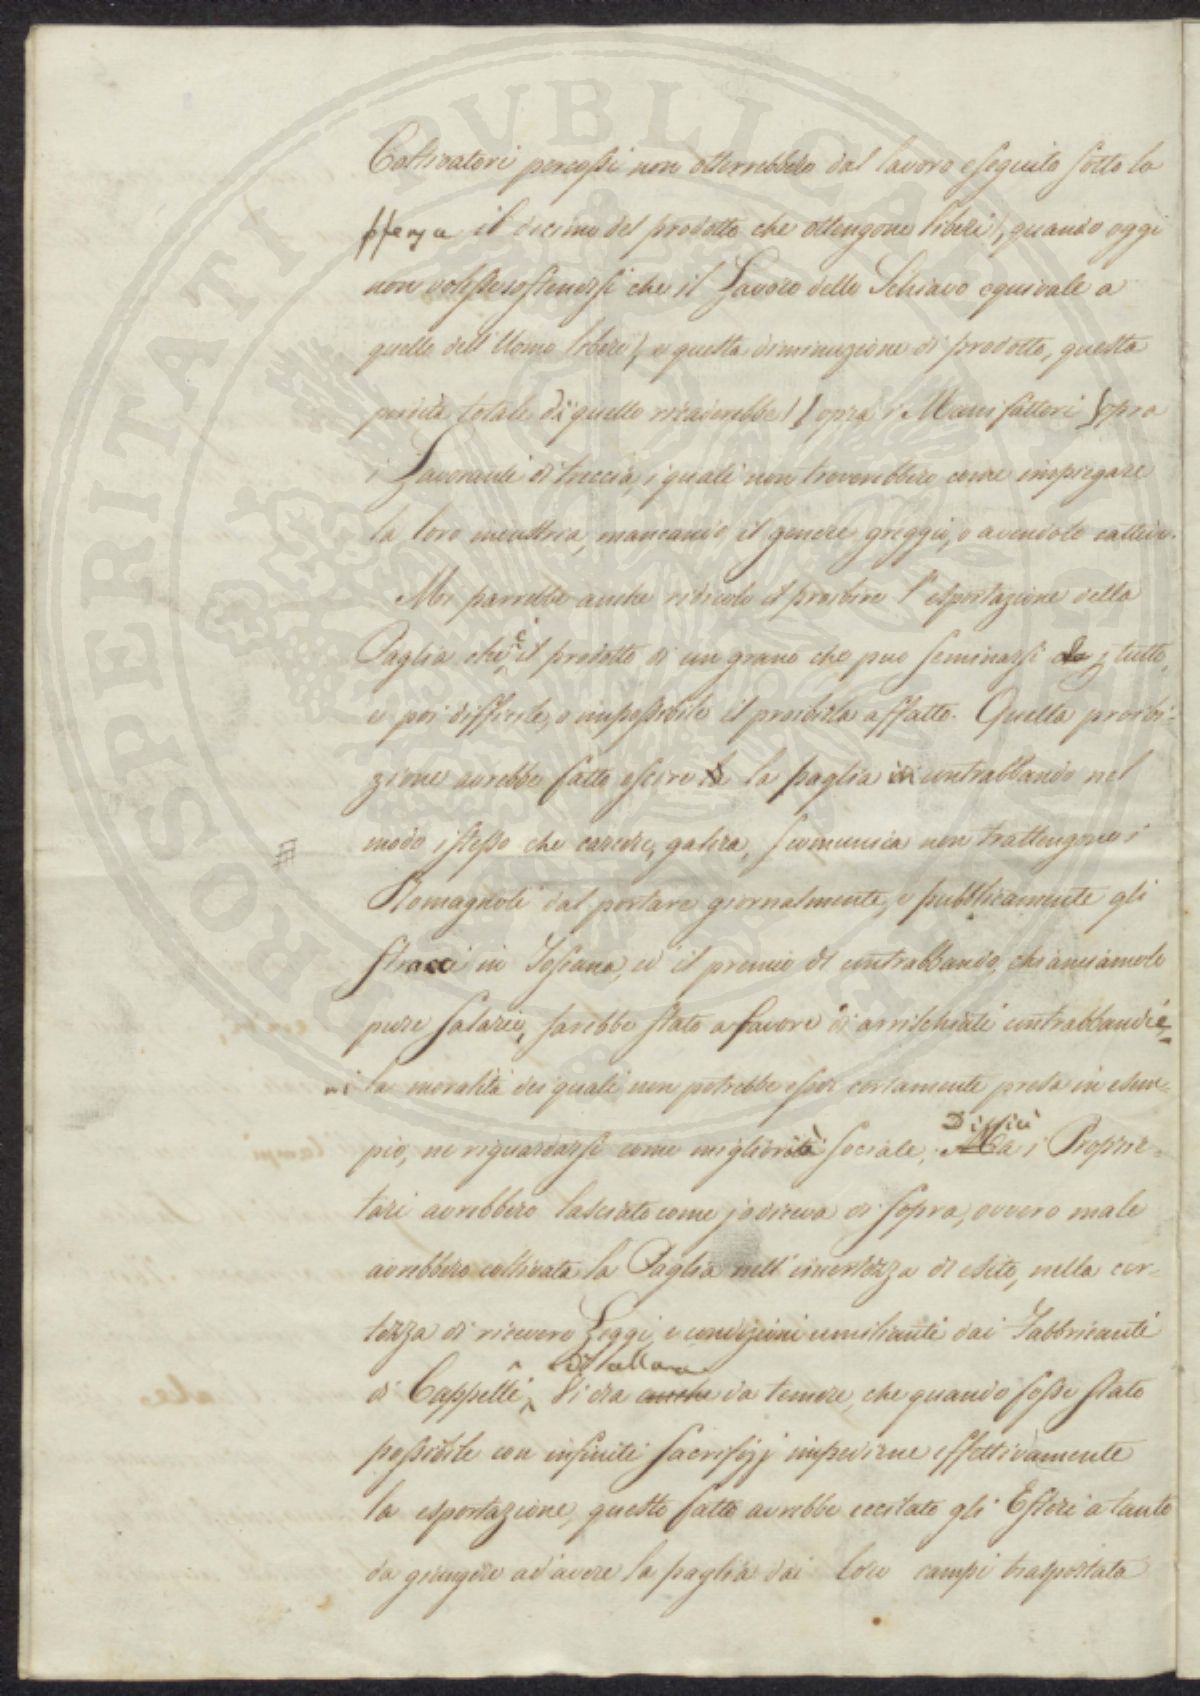 Coltivatori percossi non otterrebbero dal lavoro eseguito sotto la
sferza il decimo del prodotto che ottengono liberi, quando oggi
non volesse sostenersi che il Lavoro dello Schiavo equivale a
quello dell'Uomo libero), e questa diminuzione di prodotto, questa
perdita totale di quello ricaderebbe sopra i Manifattori sopra
i Lavoranti di treccia, i quali non troverebbero come impiegare
la loro industria, mancando il genere greggio, o avendolo cattivo.
Mi parrebbe anche ridicolo il proibire l'esportazione della
Paglia che è il prodotto di un grano che può seminarsi da tutto,
e poi difficile, o impossibile il proibirla affatto. Quella proibi-
zione avrebbe fatto escire la paglia in contrabbando nel
modo istesso che carcere, galera, scomunica non trattengono i
Romagnoli dal portare giornalmente, e pubblicamente gli
stracci in Toscana, ed il premio di contrabbando, chiamiamolo
pure salario, sarebbe stato a favore di arrischiati contrabbandie-
ri la moralità dei quali non potrebbe esser certamente presa in esem-
pio, ne riguardarsi come migliorità sociale. Dissi Ma i Proprie-
tari avrebbero lasciato come io diceva di sopra, ovvero male
avrebbero coltivata la Paglia nell'incertezza di esito, nella cer-
tezza di ricevere Leggi, e condizioni umilianti dai Fabbricanti
di Cappelli, Vi era anche da temere, che quando fosse stato
possibile con infiniti sacrifizj impedirne effettivamente
la esportazione, questo fatto avrebbe eccitato gli Esteri a tanto
da giungere ad avere la paglia dai loro campi trasportata
PROSPERITATI PVBLICAE